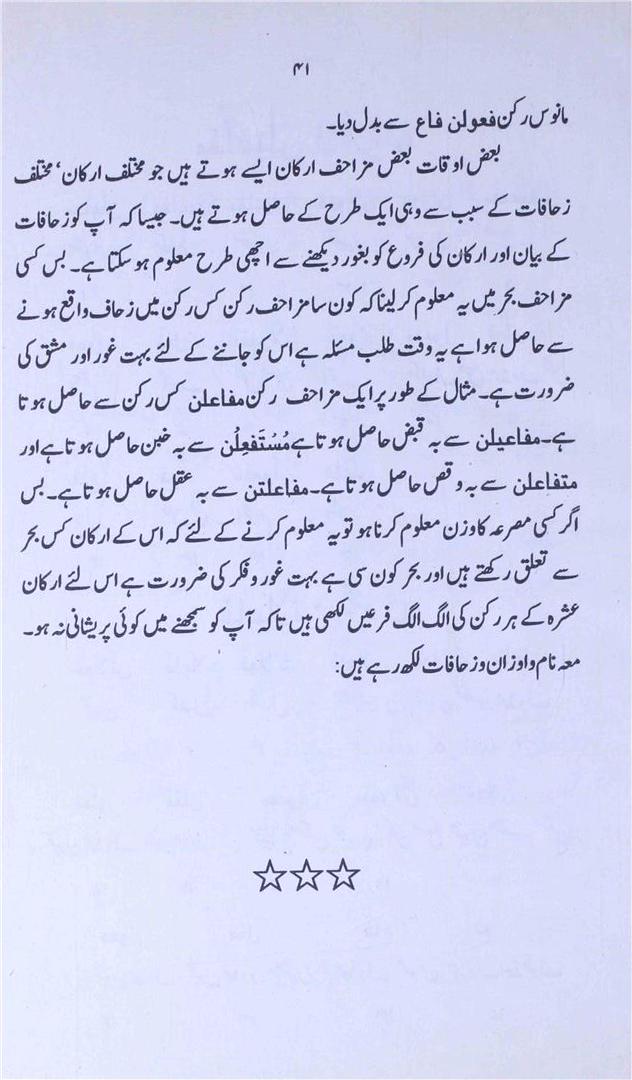 ۴۱
مانوس رکن فعولن فاع سے بدل دیا۔
بعض اوقات بعض مزاحف ارکان ایسے ہوتے ہیں جو مختلف ارکان‘ مختلف
زحافات کے سبب سے وہی ایک طرح کے حاصل ہوتے ہیں۔ جیسا کہ آپ کو زحافات
کے بیان اور ارکان کی فروع کو بغور دیکھنے سے اچھی طرح معلوم ہو سکتا ہے۔ بس کسی
مزاحف بحر میں یہ معلوم کر لینا کہ کون سا مزاحف رکن کس رکن میں زحاف واقع ہونے
سے حاصل ہوا ہے یہ وقت طلب مسئلہ ہے اس کو جاننے کے لئے بہت غور اور مشق کی
ضرورت ہے۔ مثال کے طور پر ایک مزاحف رکن مفاعلن کس رکن سے حاصل ہوتا
ہے۔ مفاعیلن سے بہ قبض حاصل ہوتا ہے مُسْتَفعِلُن سے بہ خبن حاصل ہوتا ہے اور
متفاعلن سے بہ وقص حاصل ہوتا ہے۔ مفاعلتن سے بہ عقل حاصل ہوتا ہے۔ بس
اگر کسی مصرعہ کا وزن معلوم کرنا ہو تو یہ معلوم کرنے کے لئے کہ اس کے ارکان کس بحر
سے تعلق رکھتے ہیں اور بحر کون سی ہے بہت غور و فکر کی ضرورت ہے اس لئے ارکان
عشرہ کے ہر رکن کی الگ الگ فرعیں لکھی ہیں تاکہ آپ کو سمجھنے میں کوئی پریشانی نہ ہو۔
معہ نام و اوزان و زحافات لکھ رہے ہیں: